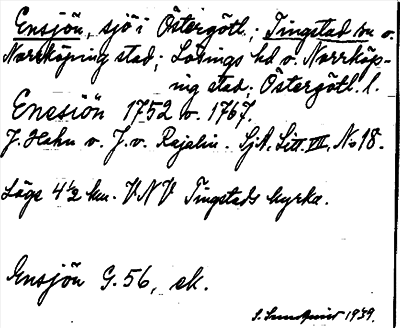 Ensjön, sjö i Östergötl.; Tingstad sn o.
Norrköping stad; Lösings hd o. Norrköp-
ing stad; Östergötl. l.
Enesiön 1752 o. 1767.
J. Hahn o. J. v. Rajalin. SjA, Litt. VII, No 18.
Läge 4 1/2 km. VNV Tingstads kyrka.
Ensjön G. 56, ek.
S. Sundqvist 1939.